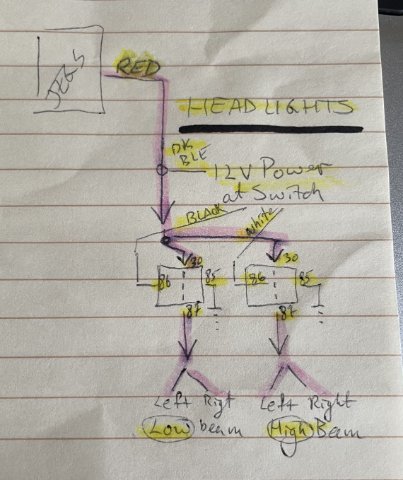 JEGS
RED
HEADLIGHTS
DK
BLE
12V Power
at Switch
BLACK
White
30
30
86
85
86
85
87
87
Left Rigt
Left Right
Low beam
High Beam